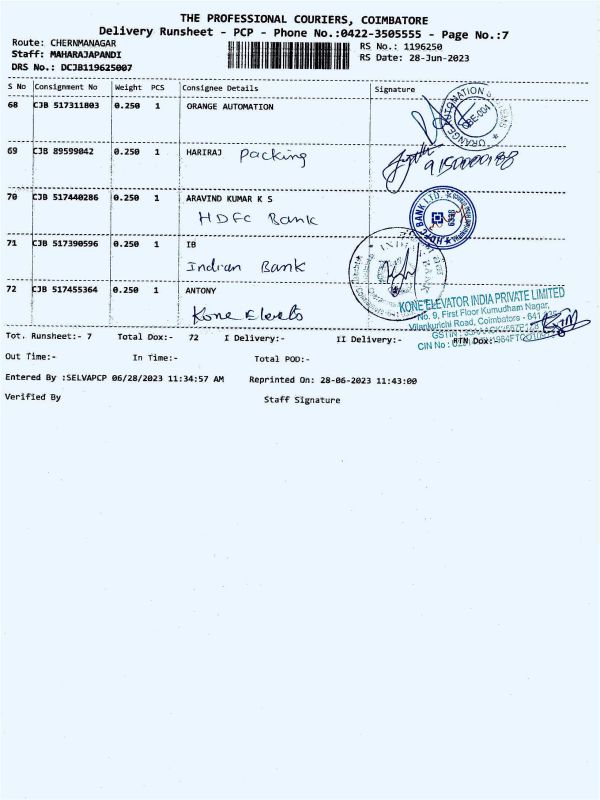 THE PROFESSIONAL COURIERS, COIMBATORE
Delivery Runsheet - PCP - Phone No.:0422-3505555 - Page No.:7
Route: CHERNMANAGAR
RS No.: 1196250
Staff: MAHARAJAPANDI
RS Date: 28-Jun-2023
DRS No.: DCJB119625007
S No Consignment No Weight PCS Consignee Details Signature
68 CJB 517311803 0.250 1 ORANGE AUTOMATION
ORANGE AUTOMATION CBE-004
69 CJB 89599042 0.250 1 HARIRAJ Packing
70 CJB 517440286 0.250 1 ARAVIND KUMAR K S
HDFC Bank
HDFC BANK LTD.
71 CJB 517390596 0.250 1 IB
Indian Bank
INDIAN BANK
72 CJB 517455364 0.250 1 ANTONY
Kone Elevato
KONE ELEVATOR INDIA PRIVATE LIMITED
No. 9, First Floor Kumudham Nagar,
Vilankurichi Road, Coimbatore - 641
GSTIN
CIN No :
Tot. Runsheet:- 7 Total Dox:- 72 I Delivery:- II Delivery:- RTN Dox:-
Out Time:- In Time:- Total POD:-
Entered By :SELVAPCP 06/28/2023 11:34:57 AM Reprinted On: 28-06-2023 11:43:00
Verified By Staff Signature